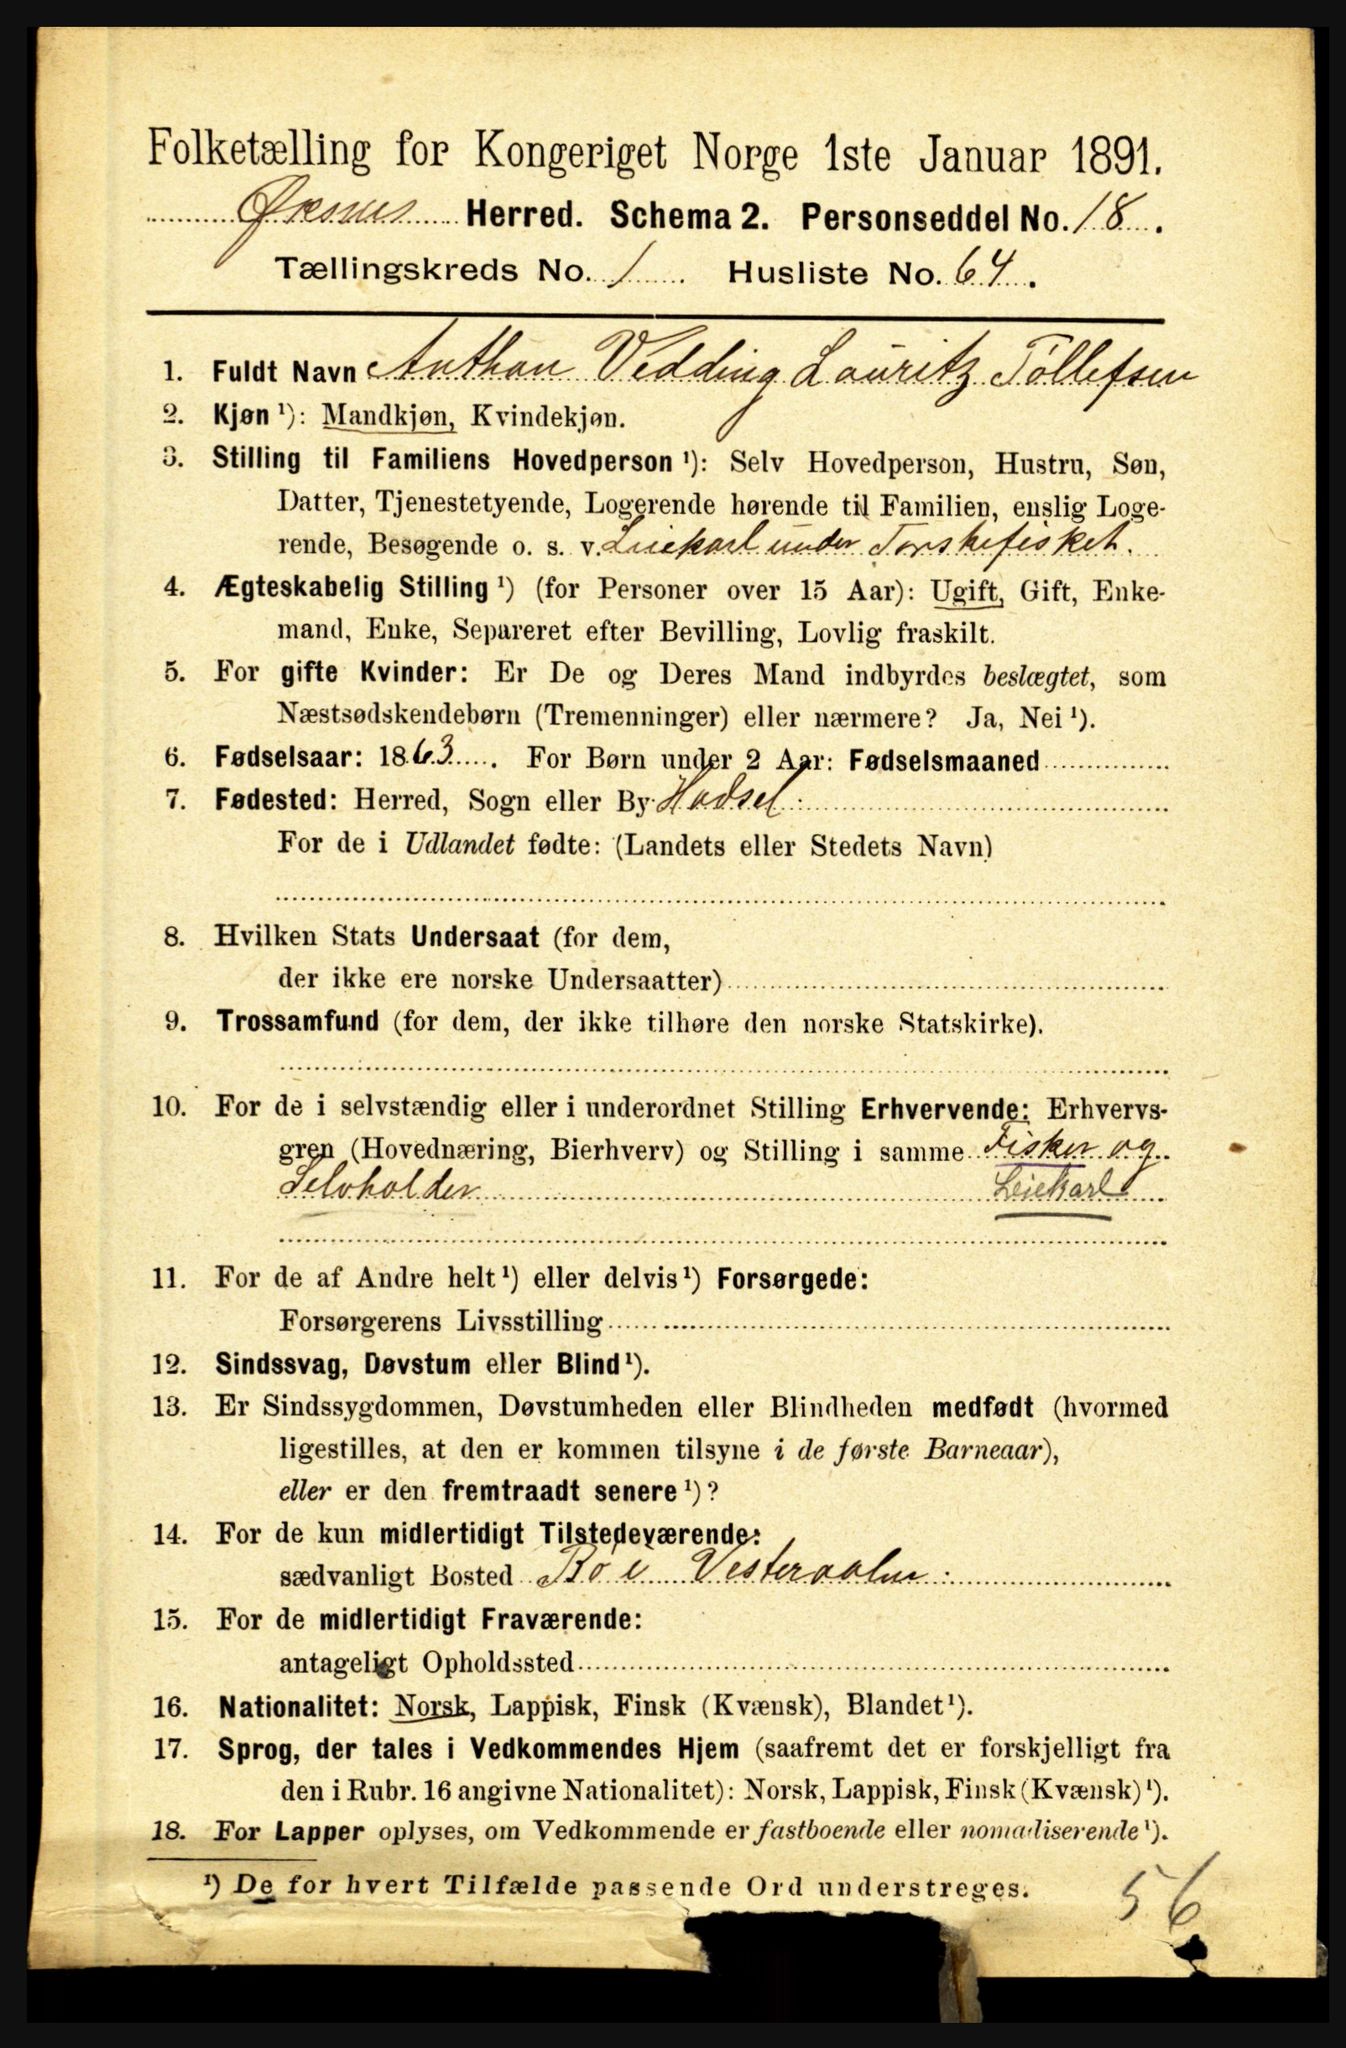 Folketælling for Kongeriget Norge 1ste Januar 1891.
Øksnes Herred. Schema 2. Personseddel No. 18.
Tællingskreds No. 1 Husliste No. 64.
1. Fuldt Navn Anthon Vedding Lauritz Tollefsen
2. Kjøn ¹): Mandkjøn, Kvindekjøn.
3. Stilling til Familiens Hovedperson ¹): Selv Hovedperson, Hustru, Søn,
Datter, Tjenestetyende, Logerende hørende til Familien, enslig Loge-
rende, Besøgende o. s. v. Leiekarl under Torskefisket.
4. Ægteskabelig Stilling ¹) (for Personer over 15 Aar): Ugift, Gift, Enke-
mand, Enke, Separeret efter Bevilling, Lovlig fraskilt.
5. For gifte Kvinder: Er De og Deres Mand indbyrdes beslægtet, som
Næstsødskendebørn (Tremenninger) eller nærmere? Ja, Nei ¹).
6. Fødselsaar: 1863. For Børn under 2 Aar: Fødselsmaaned
7. Fødested: Herred, Sogn eller By Hadsel
For de i Udlandet fødte: (Landets eller Stedets Navn)
8. Hvilken Stats Undersaat (for dem,
der ikke ere norske Undersaatter)
9. Trossamfund (for dem, der ikke tilhøre den norske Statskirke).
10. For de i selvstændig eller i underordnet Stilling Erhvervende: Erhvervs-
gren (Hovednæring, Bierhverv) og Stilling i samme Fisker og
Selvholder Leiekarl
11. For de af Andre helt ¹) eller delvis ¹) Forsørgede:
Forsørgerens Livsstilling
12. Sindssvag, Døvstum eller Blind ¹).
13. Er Sindssygdommen, Døvstumheden eller Blindheden medfødt (hvormed
ligestilles, at den er kommen tilsyne i de første Barneaar),
eller er den fremtraadt senere ¹)?
14. For de kun midlertidigt Tilstedeværende:
sædvanligt Bosted Bø i Vesteraalen
15. For de midlertidigt Fraværende:
antageligt Opholdssted
16. Nationalitet: Norsk, Lappisk, Finsk (Kvænsk), Blandet ¹).
17. Sprog, der tales i Vedkommendes Hjem (saafremt det er forskjelligt fra
den i Rubr. 16 angivne Nationalitet): Norsk, Lappisk, Finsk (Kvænsk) ¹).
18. For Lapper oplyses, om Vedkommende er fastboende eller nomadiserende ¹).
¹) De for hvert Tilfælde passende Ord understreges.
56